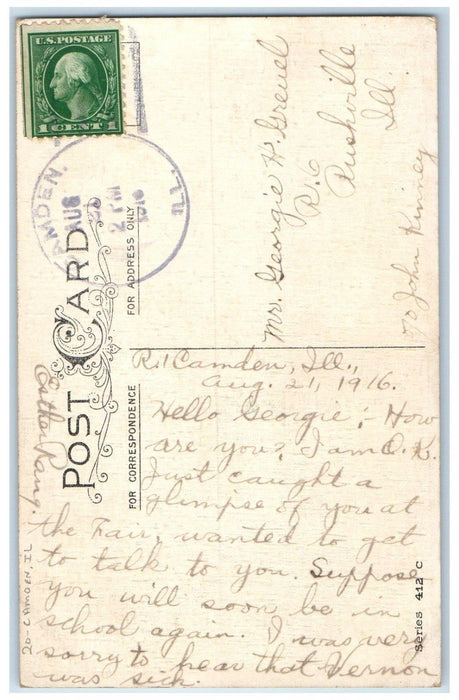 U.S. POSTAGE
1 CENT 1
CAMDEN,
ILL.
AUG
2 PM
1916
POST CARD
FOR ADDRESS ONLY
FOR CORRESPONDENCE
Mr. Georgie H. Greuel
R. 6
Rushville
Ill.
% John Kinney
R.1 Camden, Ill.,
Aug. 21, 1916.
Hello Georgie:- How
are you? I am O.K.
Just caught a
glimpse of you at
the Fair, wanted to get
to talk to you. Suppose
you will soon be in
school again. I was very
sorry to hear that Vernon
was sick.
Esther
20-CAMDEN, IL
Series 412 C